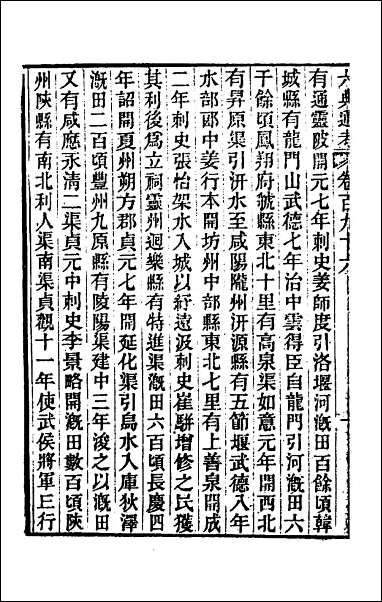 六典通考 卷百九十六
有通靈陂開元七年刺史姜師度引洛堰河漑田百餘頃韓
城縣有龍門山武德七年治中雲得臣自龍門引河漑田六
千餘頃鳳翔府虢縣東北十里有高泉渠如意元年開西北
有昇原渠引汧水至咸陽隴州汧源縣有五節堰武德八年
水部郎中姜行本開坊州中部縣東北七里有上善泉開成
二年刺史張怡架水入城以紓遠汲刺史崔駢增修之民獲
其利後爲立祠靈州迴樂縣有特進渠漑田六百頃長慶四
年詔開夏州朔方郡貞元七年開延化渠引烏水入庫狄澤
漑田二百頃豐州九原縣有陵陽渠建中三年浚之以漑田
又有咸應永清二渠貞元中刺史李景略開漑田數百頃陝
州陝縣有南北利人渠南渠貞觀十一年使武侯將軍三行